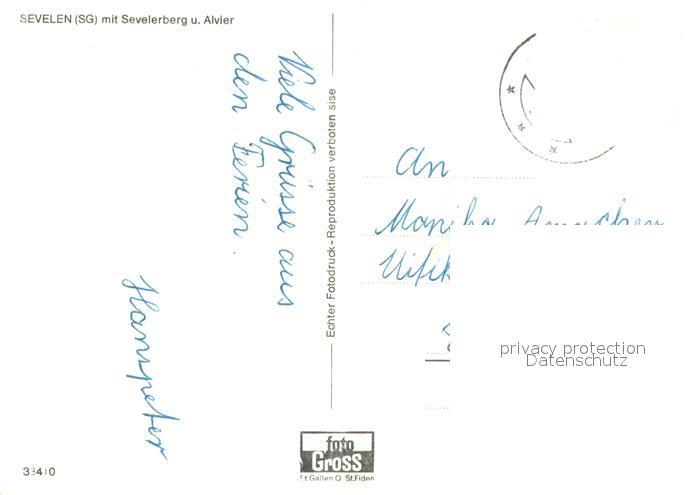 SEVELEN (SG) mit Sevelerberg u. Alvier
Viele Grüsse aus
den Ferien.
Hanspeter
Echter Fotodruck - Reproduktion verboten sise
An
privacy protection
Datenschutz
foto
GROSS
St Gallen O St.Fiden
33410